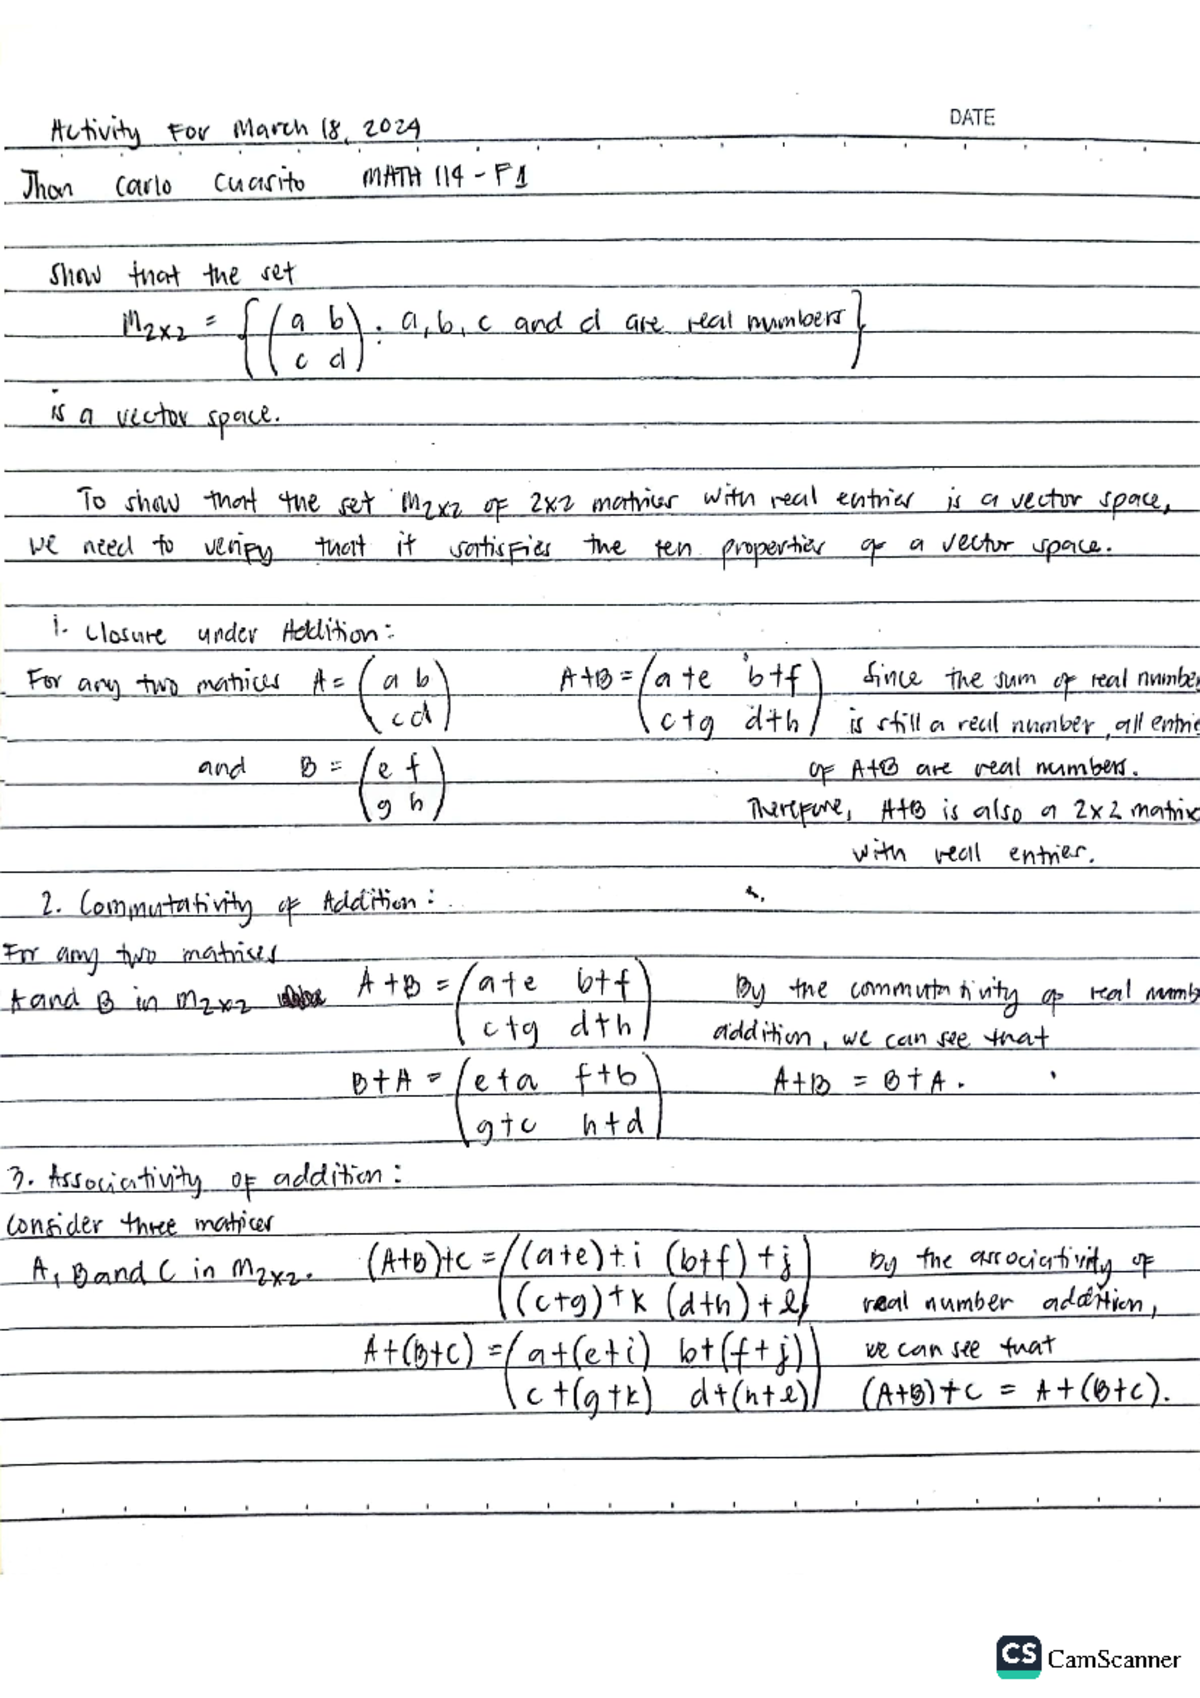 DATE
Activity For March 18, 2024
Jhan Carlo Cuasito MATH 114 - F1
Show that the set
M2x2 = { ( a b ) : a, b, c and d are real numbers }
( c d )
is a vector space.
To show that the set M2x2 of 2x2 matrices with real entries is a vector space,
we need to verify that it satisfies the ten properties of a vector space.
1. Closure under Addition:
For any two matrices A = ( a b ) A+B = ( a+e b+f ) Since the sum of real number
( c d ) ( c+g d+h ) is still a real number, all entrie
and B = ( e f ) of A+B are real numbers.
( g h ) Therefore, A+B is also a 2x2 matrix
with real entries.
2. Commutativity of Addition:
For any two matrices
A and B in M2x2 A+B = ( a+e b+f ) By the commutativity of real numb
( c+g d+h ) addition, we can see that
B+A = ( e+a f+b ) A+B = B+A.
( g+c h+d )
3. Associativity of addition:
Consider three matrices
A, B and C in M2x2. (A+B)+C = ( (a+e)+i (b+f)+j ) By the associativity of
( (c+g)+k (d+h)+l ) real number addition,
A+(B+C) = ( a+(e+i) b+(f+j) ) we can see that
( c+(g+k) d+(h+l) ) (A+B)+C = A+(B+C).
CS CamScanner